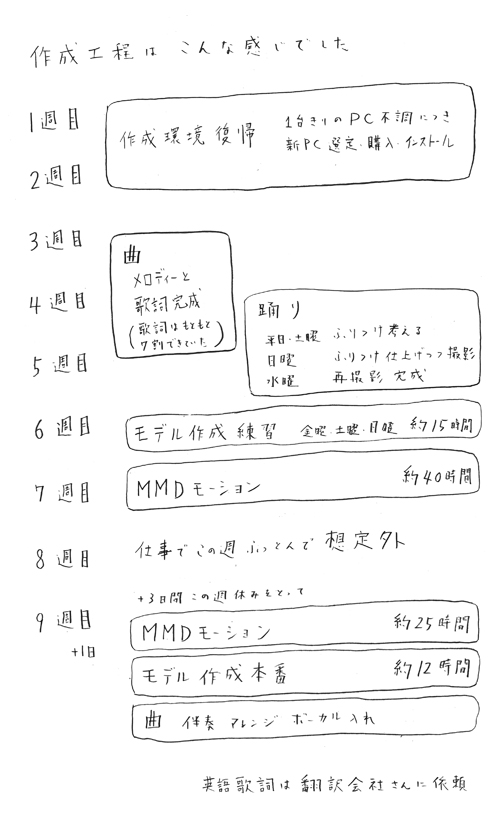 作成工程は こんな感じでした
1週目
作成環境復帰
1台きりのPC不調につき
新PC選定・購入・インストール
2週目
3週目
曲
メロディーと
歌詞完成
(歌詞はもともと
7割できていた)
4週目
踊り
平日・土曜 ふりつけ考える
日曜 ふりつけ仕上げつつ撮影
水曜 再撮影 完成
5週目
6週目
モデル作成練習 金曜・土曜・月曜 約15時間
7週目
MMDモーション 約40時間
8週目
仕事でこの週ふっとんで想定外
+3日間この週休みをとって
9週目
+1日
MMDモーション 約25時間
モデル作成本番 約12時間
曲 伴奏 アレンジ ボーカル入れ
英語歌詞は翻訳会社さんに依頼